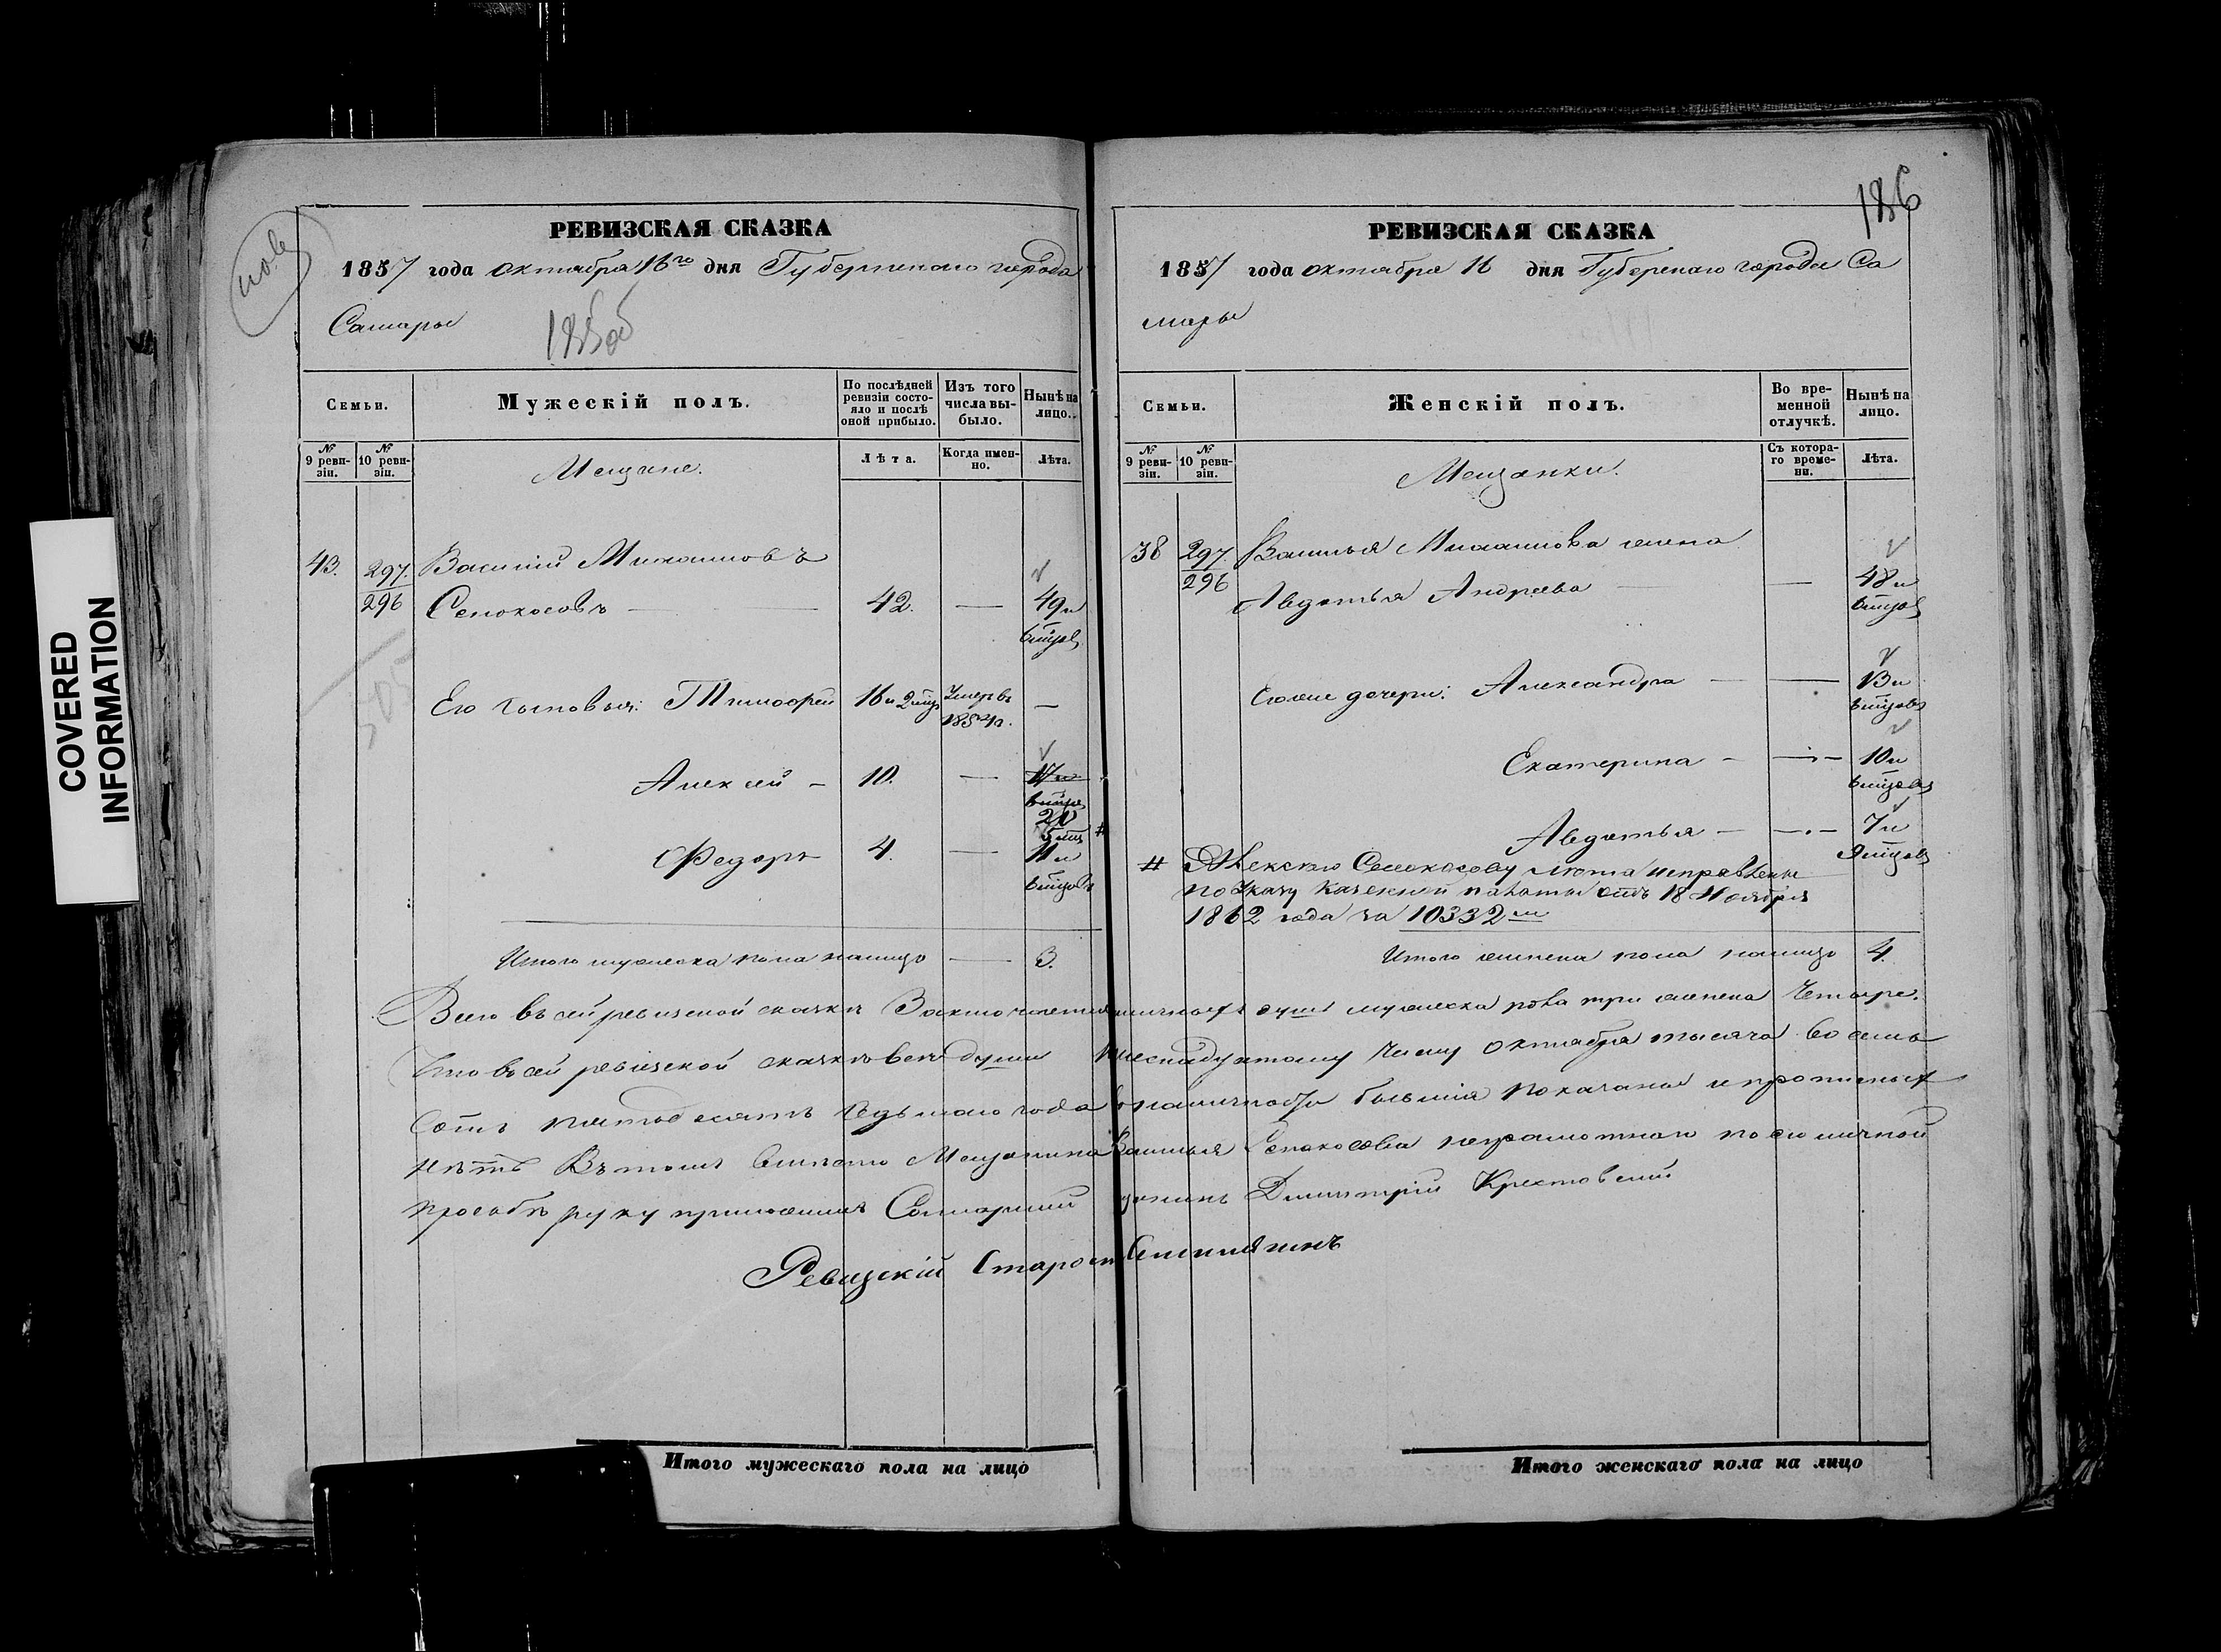 COVERED
INFORMATION
РЕВИЗСКАЯ СКАЗКА
1857 года октября 16го дня Губернскаго города
Самары
185об
Семьи.
Мужескій полъ.
По послѣдней ревизіи состояло и послѣ оной прибыло.
Изъ того числа выбыло.
Нынѣ на лицо.
№ 9 ревизіи.
№ 10 ревизіи.
Мещане.
Лѣта.
Когда именно.
Лѣта.
43. 297. Василий Михаиловъ
296 Сенокосовъ — 42. — 49 и
6 мцов
Его сыновья: Тимофей 16 и 2 мцъ Умеръ в 1854 г. —
Алексей — 10. — 17 и
6 мцов
21
5 мц #
Федоръ 4. — 11 и
6 мцов
Итого мужеска пола налицо — 3.
186
РЕВИЗСКАЯ СКАЗКА
1857 года октября 16 дня Губернскаго города Са
мары
Семьи.
Женскій полъ.
Во временной отлучкѣ.
Нынѣ на лицо.
№ 9 ревизіи.
№ 10 ревизіи.
Мещанки.
Съ котораго времени.
Лѣта.
38 297. Василья Михаилова жена
296 Авдотья Андреева — 48 и
6 мцов
дочери: Александра — — 13 и
6 мцовъ
Екатерина — — 10 и
6 мцовъ
Авдотья — — 7 и
9 мцовъ
# Алексею Сенокосову лета исправлены
по Указу Казенной палаты отъ 18 Ноября
1862 года за 10332 м
Итого женска пола налицо 4.
Всего въ сей ревизской сказке Заключается наличныхъ душъ мужеска пола три женска Четыре.
Что въ сей ревизской сказке все души к шеснадцатому числу Октября тысяча восемь
сотъ пятьдесятъ седьмаго года в наличности бывшия показаны и прописныхъ
нѣтъ Въ томъ вместо Мещанина Василья Сенокосова неграмотнаго по его личной
прозьбе руку приложилъ Самарский мещанинъ Димитрий Крестовский
Ревизскій Староста
Итого мужескаго пола на лицо
Итого женскаго пола на лицо